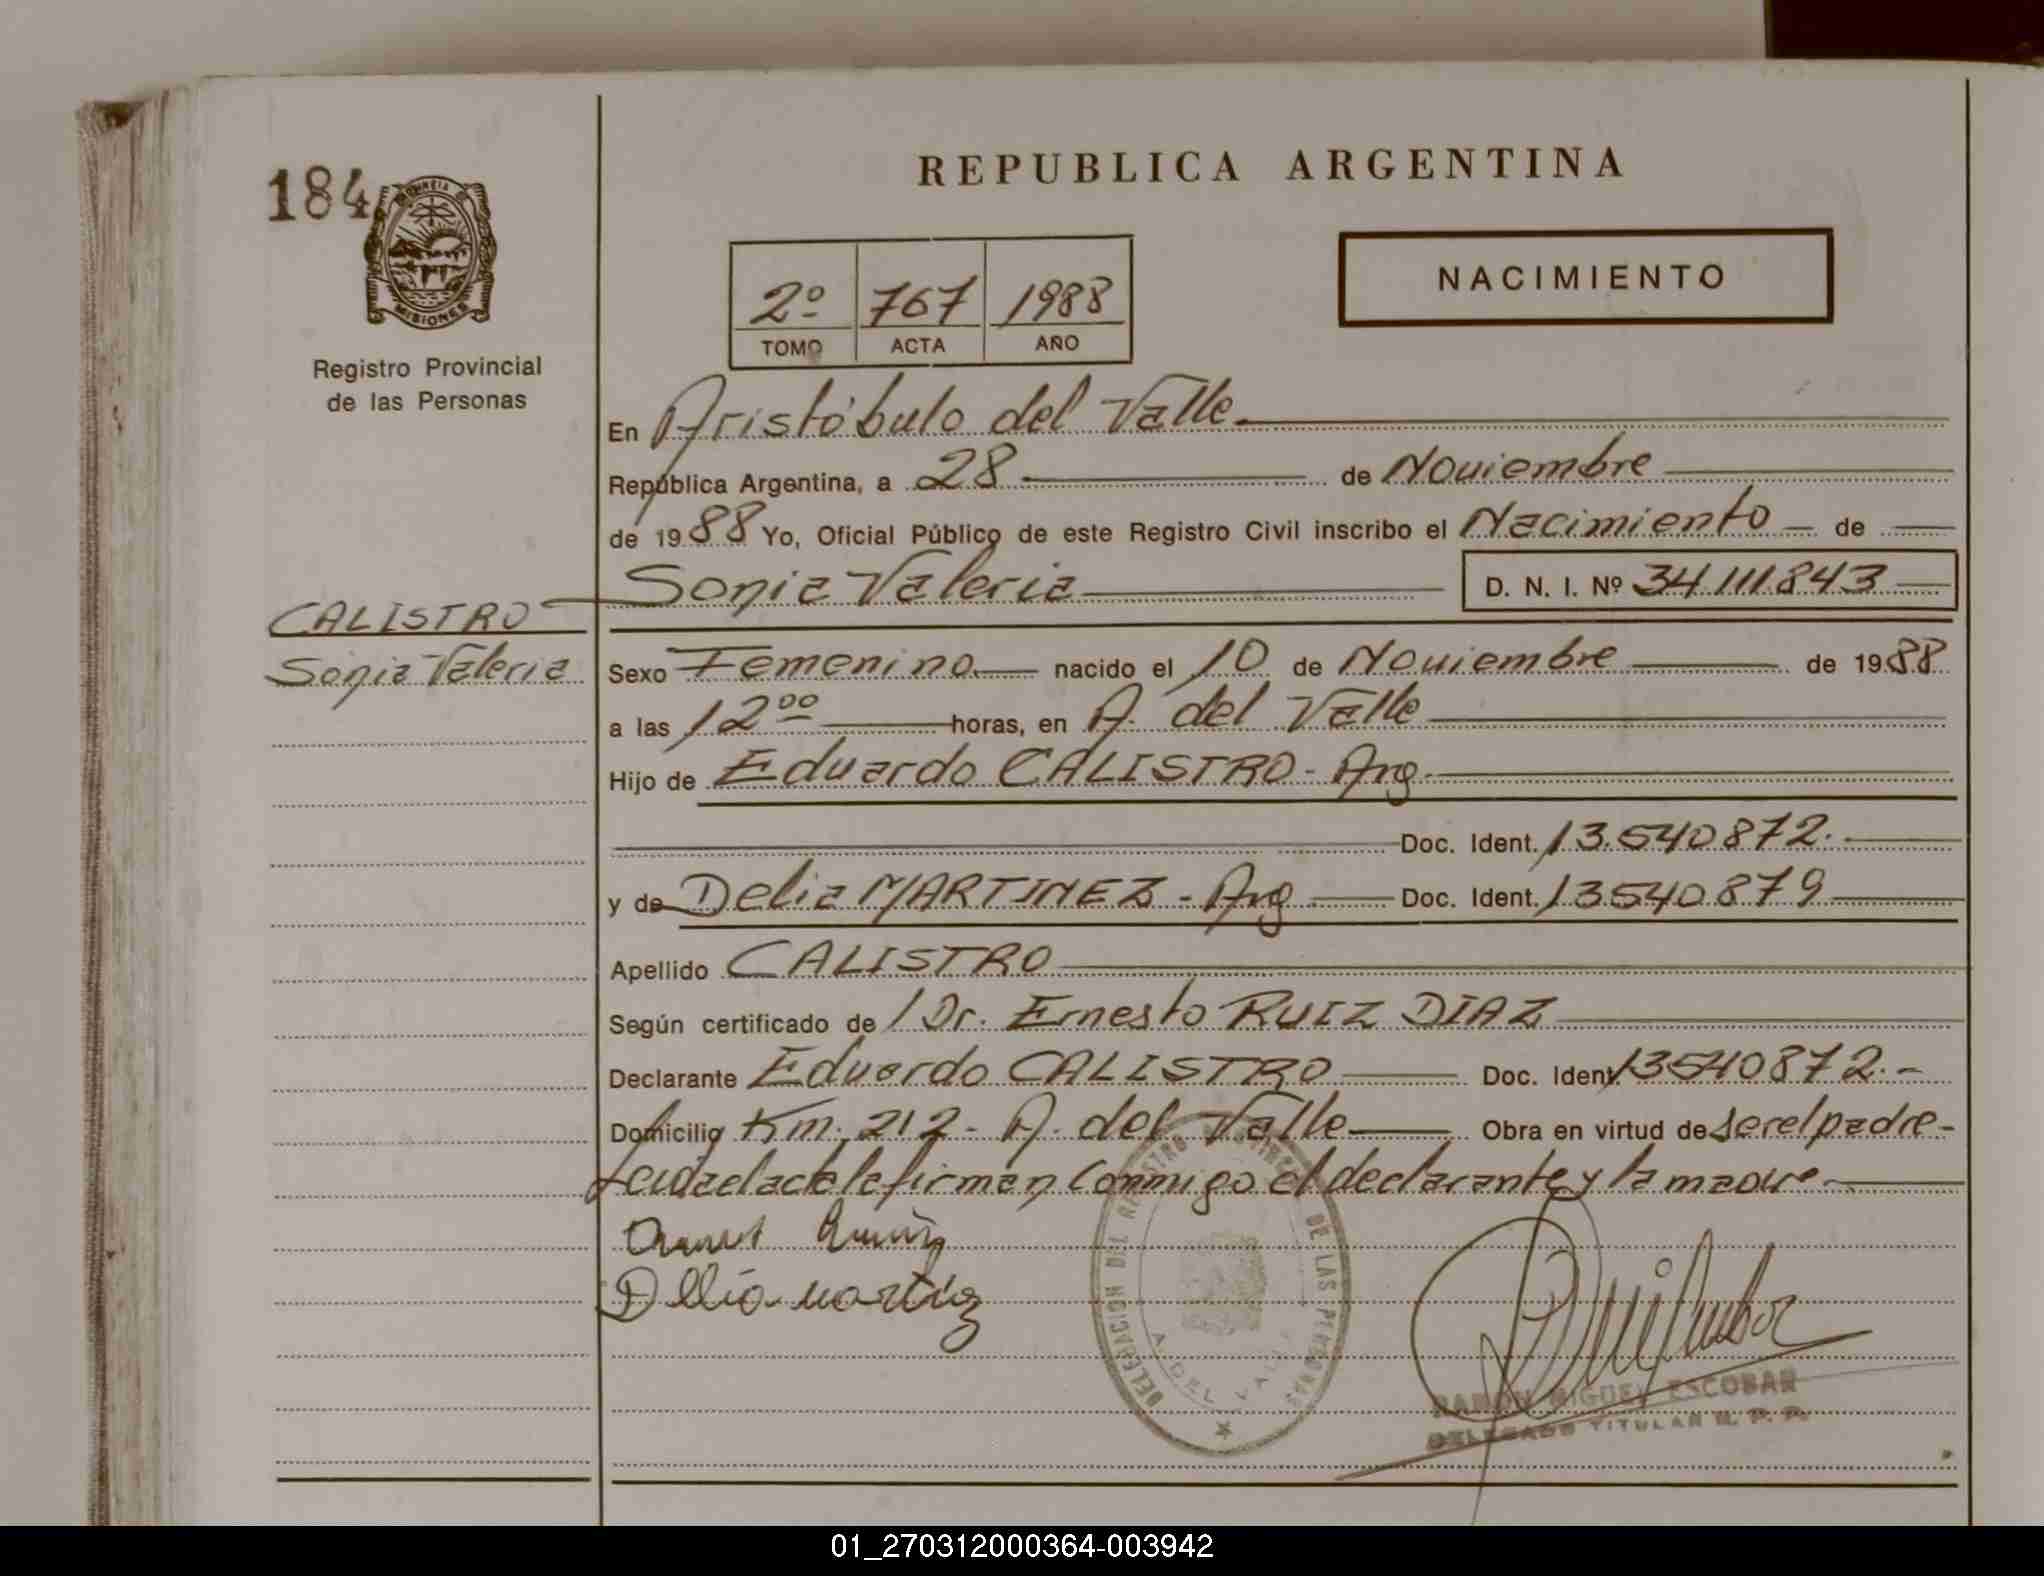 REPUBLICA ARGENTINA
184
PROVINCIA
MISIONES
Registro Provincial
de las Personas
NACIMIENTO
2º 767 1988
TOMO ACTA AÑO
En Aristóbulo del Valle
República Argentina, a 28 de Noviembre
de 1988 Yo, Oficial Público de este Registro Civil inscribo el Nacimiento de
Sonia Valeria D. N. I. Nº 34.111.843
CALISTRO
Sonia Valeria
Sexo Femenino nacido el 10 de Noviembre de 1988
a las 12 00 horas, en A. del Valle
Hijo de Eduardo CALISTRO - Arg.
Doc. Ident. 13.540872.
y de Delia MARTINEZ - Arg Doc. Ident. 13540879
Apellido CALISTRO
Según certificado de / Dr. Ernesto RUIZ DIAZ
Declarante Eduardo CALISTRO Doc. Ident. 13540872.-
Domicilio Km. 212 - A. del Valle Obra en virtud de ser el padre -
Leida el acta la firman conmigo el declarante y la madre
Delia
DELEGACION DEL REGISTRO PROVINCIAL DE LAS PERSONAS
A. DEL VALLE
RAMON MIGUEL ESCOBAR
DELEGADO TITULAR R. P. P.
01_270312000364-003942